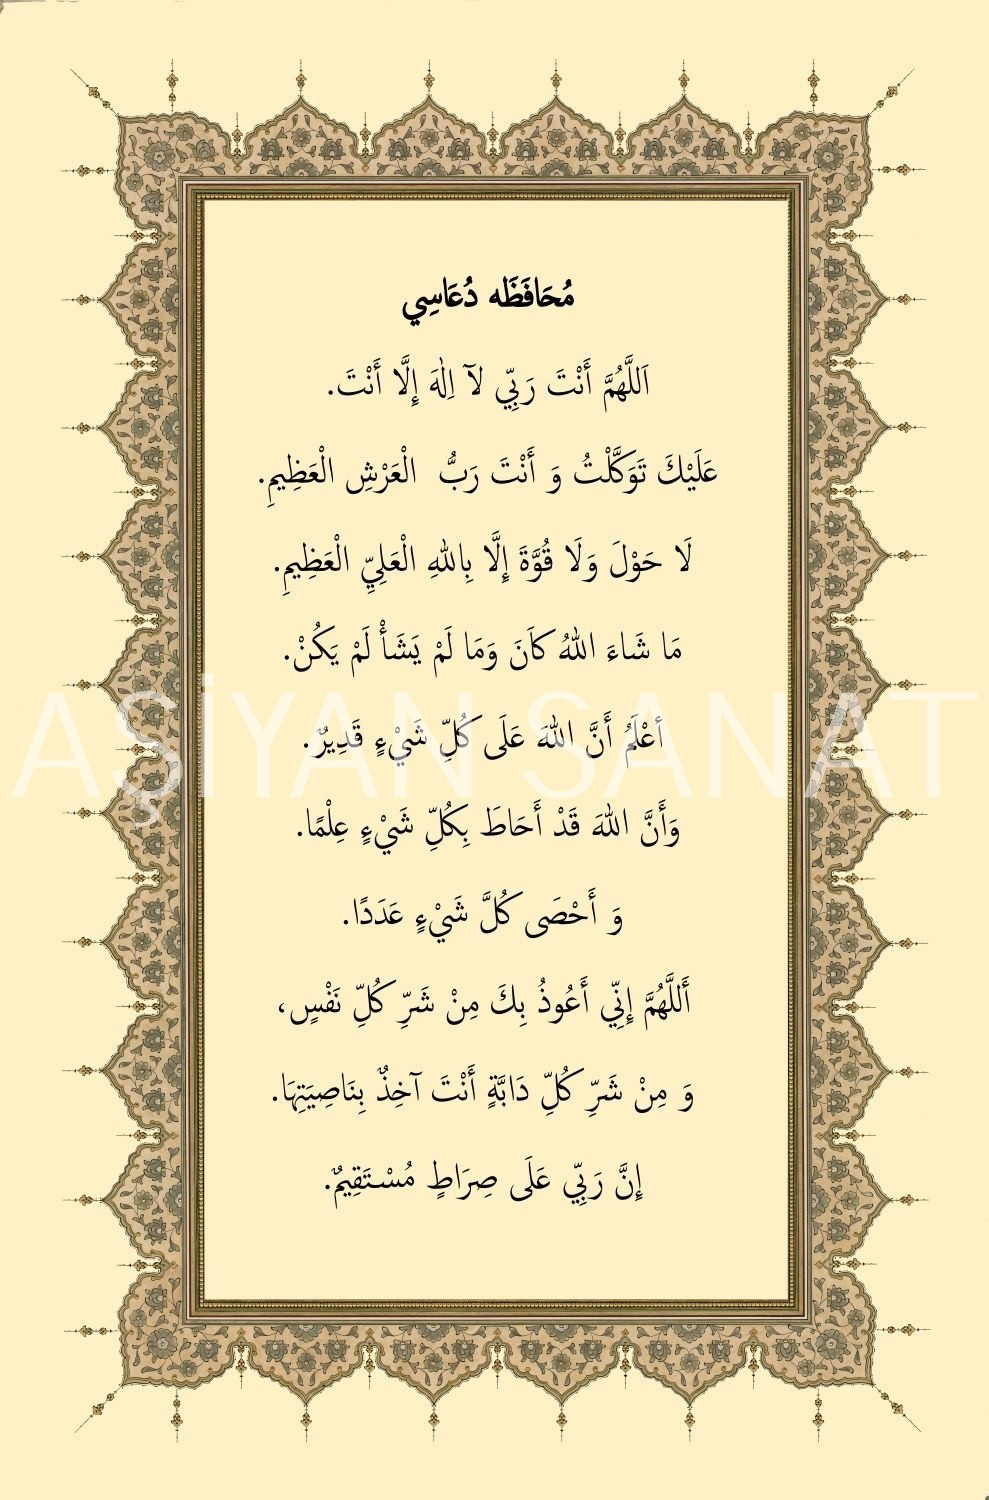 مُحَافَظَه دُعَاسِي
اَللَّهُمَّ أَنْتَ رَبِّي لآ اِلٰهَ إِلَّا أَنْتَ.
عَلَيْكَ تَوَكَّلْتُ وَ أَنْتَ رَبُّ الْعَرْشِ الْعَظِيمِ.
لَا حَوْلَ وَلَا قُوَّةَ إِلَّا بِاللهِ الْعَلِيِّ الْعَظِيمِ.
مَا شَاءَ اللهُ كَانَ وَمَا لَمْ يَشَأْ لَمْ يَكُنْ.
أعْلَمُ أَنَّ اللهَ عَلَى كُلِّ شَيْءٍ قَدِيرٌ.
AŞİYAN SANAT
وَأَنَّ اللهَ قَدْ أَحَاطَ بِكُلِّ شَيْءٍ عِلْمًا.
وَ أَحْصَى كُلَّ شَيْءٍ عَدَدًا.
أَللَّهُمَّ إِنِّي أَعُوذُ بِكَ مِنْ شَرِّ كُلِّ نَفْسٍ،
وَ مِنْ شَرِّ كُلِّ دَابَّةٍ أَنْتَ آخِذٌ بِنَاصِيَتِهَا.
إِنَّ رَبِّي عَلَى صِرَاطٍ مُسْتَقِيمٌ.